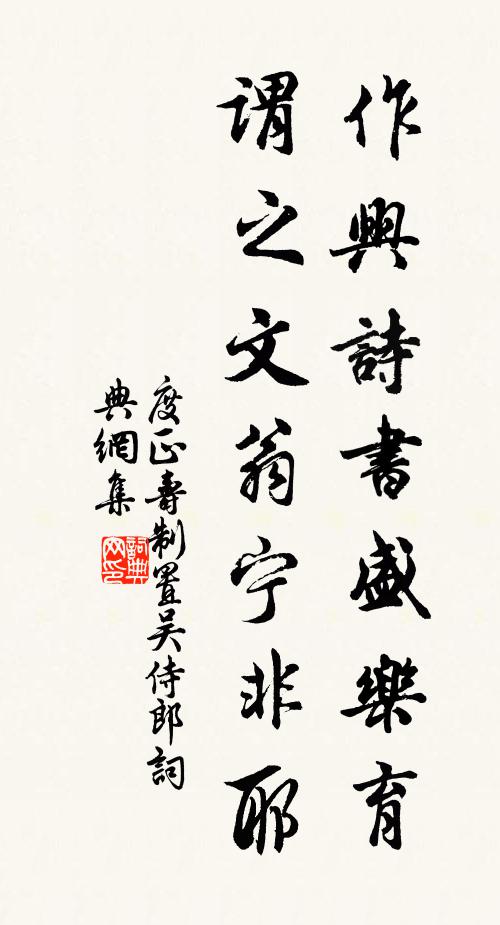 作興詩書盛樂育
謂之文翁宁非耶
度正壽制置吴侍郎詞
典網集
詞典网印